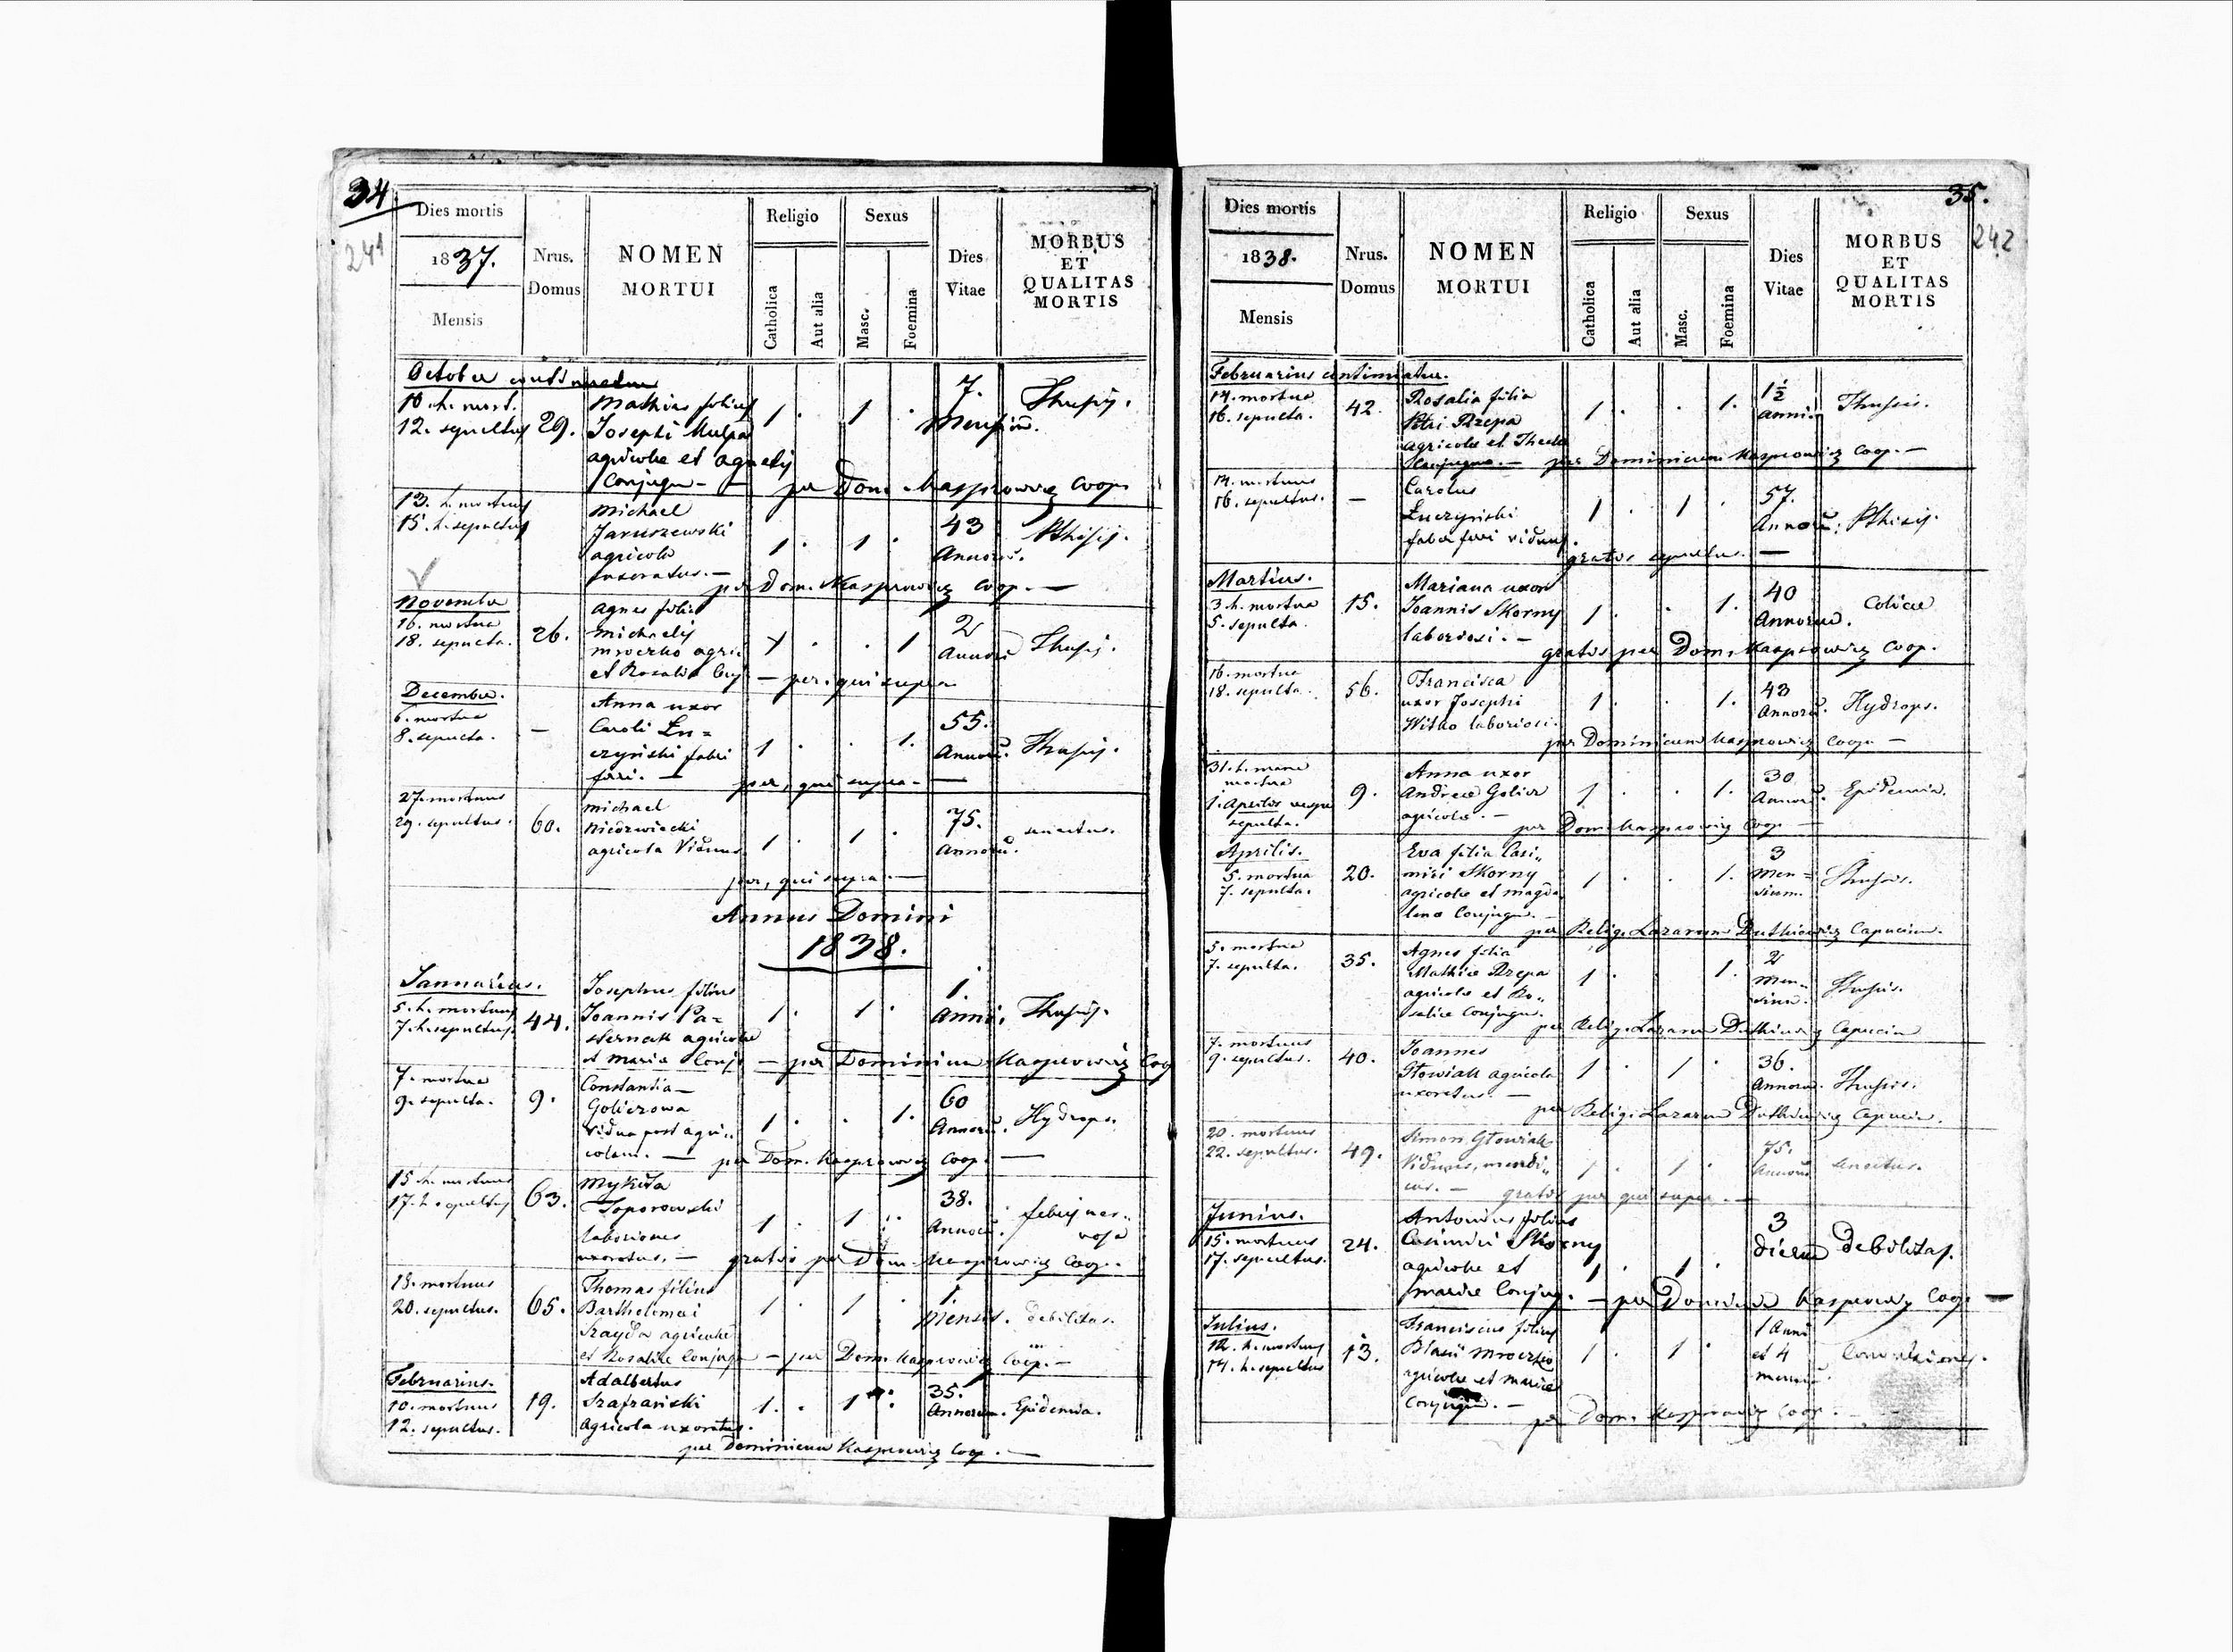 34
241
Dies mortis
1837.
Mensis
Nrus.
Domus
NOMEN
MORTUI
Religio
Catholica
Aut alia
Sexus
Masc.
Foemina
Dies
Vitae
MORBUS
ET
QUALITAS
MORTIS
October
10. h. mort.
12. sepultus
29.
Mathias filius
Josephi Mulpa
agricolae et agnetis
Conjugu-
1 . 1 .
7.
Mensiū.
Thusis.
per Dom. Kasprowicz Coop.
13. h. mortuus
15. h. sepultus
Michael
Jaruszewski
agricola
uxoratus.—
1 . 1 .
43
Annorū.
Phisis.
per Dom. Kasprowicz coop. —
November
16. mortua
18. sepulta.
26.
Agnes filia
Michaelis
Mroczko agric
et Rosalia Conj
. . 1
2
Annorū
Thusis.
— per. qui supra
December.
6. mortua
8. sepulta.
—
Anna uxor
Caroli Łu=
czyński fabri
ferri. —
1 . . 1.
55.
Annorū.
Thusis.
per, qui supra. —
27. mortuus
29. sepultus.
60.
Michael
Niedzwiecki
agricola Viduus
1 . 1 .
75.
Annorū.
senectus.
per, qui supra. —
Annus Domini
1838.
Januarius.
5. h. mortuus
7. h. sepultus.
44.
Josephus filius
Joannis Pa=
sternak agricolae
et Maria Conj
1 . 1 .
1.
Anni.
Thusis.
— per Dominicum Kasprowicz Coop
7. mortua
9. sepulta.
9.
Constantia—
Golierowa
vidua post agri„
colam. —
1 . . 1.
60
Annorū.
Hydrops.
per Dom. Kasprowicz Coop. —
15 h. mortuus
17. h. sepultus
63.
Mykita
Toporowski
laboriosus
uxoratus. —
1 . 1 .
38.
Annorū.
febris ner„
vosa
gratis per Dom. Kasprowicz Coop.
18. mortuus
20. sepultus.
65.
Thomas filius
Barthelomei
Szayda agricolae
et Rosaliae Conjug
1 . 1 .
1.
Mensis.
debilitas.
— per Dom. Kasprowicz Coop. —
Februarius.
10. mortuus
12. sepultus.
19.
Adalbertus
Szafrański
Agricola uxoratus.
1. . 1 .
35.
Annorum.
Epidemia.
per Dominicum Kasprowicz Coop. —
35.
242
Dies mortis
1838.
Mensis
Nrus.
Domus
NOMEN
MORTUI
Religio
Catholica
Aut alia
Sexus
Masc.
Foemina
Dies
Vitae
MORBUS
ET
QUALITAS
MORTIS
Februarius continuatur.
14. mortua
16. sepulta.
42.
Rosalia filia
Petri Rzepa
agricolae et Thecla
Conjugu. —
1 . . 1.
1½
Anni.
Thusis.
per Dominicum Kasprowicz Coop. —
14. mortuus
16. sepultus.
—
Carolus
Łuczyński
faber ferri viduus.
1 . 1 .
57.
Annorū.
Phisis.
gratis sepultus. —
Martius.
3. h. mortua
5. sepulta.
15.
Mariana uxor
Joannis Skorny
laboriosi. —
1 . . 1.
40
Annorum.
Colica
gratis per Dom. Kasprowicz Coop.
16. mortua
18. sepulta.
56.
Francisca
uxor Josephi
Witko laboriosi.
1 . . 1.
43
Annorū.
Hydrops.
per Dominicum Kasprowicz Coop. —
31. h. mane
mortua
1. Aprilis vespe
sepulta.
9.
Anna uxor
Andreae Golier
agricola. —
1 . . 1.
30
Annorū.
Epidemia.
per Dom. Kasprowicz Coop —
Aprilis.
5. mortua
7. sepulta.
20.
Eva filia Casi„
miri Skorny
agricolae et Magda
lena Conjugu. —
1 . . 1.
3
Men=
sium.
Thusis.
per Relig. Lazarum Dutkiewicz Capucin.
5. mortua
7. sepulta.
35.
Agnes filia
Mathiae Rzepa
agricolae et Ro„
saliae Conjugu.
1 . . 1.
2
Men=
sium.
Thusis.
per Relig. Lazarum Dutkiewicz Capucin
7. mortuus
9. sepultus.
40.
Joannes
Głowiak agricola
uxoratus. —
1 . 1 .
36.
Annorum.
Thusis.
per Relig. Lazarum Dutkiewicz Capucin.
20. mortuus
22. sepultus.
49.
Simon Głowiak
Viduus, mendi„
cus. —
1 . 1 .
75.
Annorū
senectus.
gratis per qui supra. —
Junius.
15. mortuus
17. sepultus.
24.
Antonius filius
Casimiri Skorny
agricolae et
Mariae Conjug.
1 . 1 .
3
dierū
debilitas.
— per Dominicum Kasprowicz Coop. —
Julius.
12. h. mortuus
14. h. sepultus
13.
Franciscus filius
Blasii Mroczko
agricolae et Mariae
Conjugū. —
1 . 1 .
1 Anni
et 4
mensiū.
Convulsiones.
per Dom. Kasprowicz Coop. —